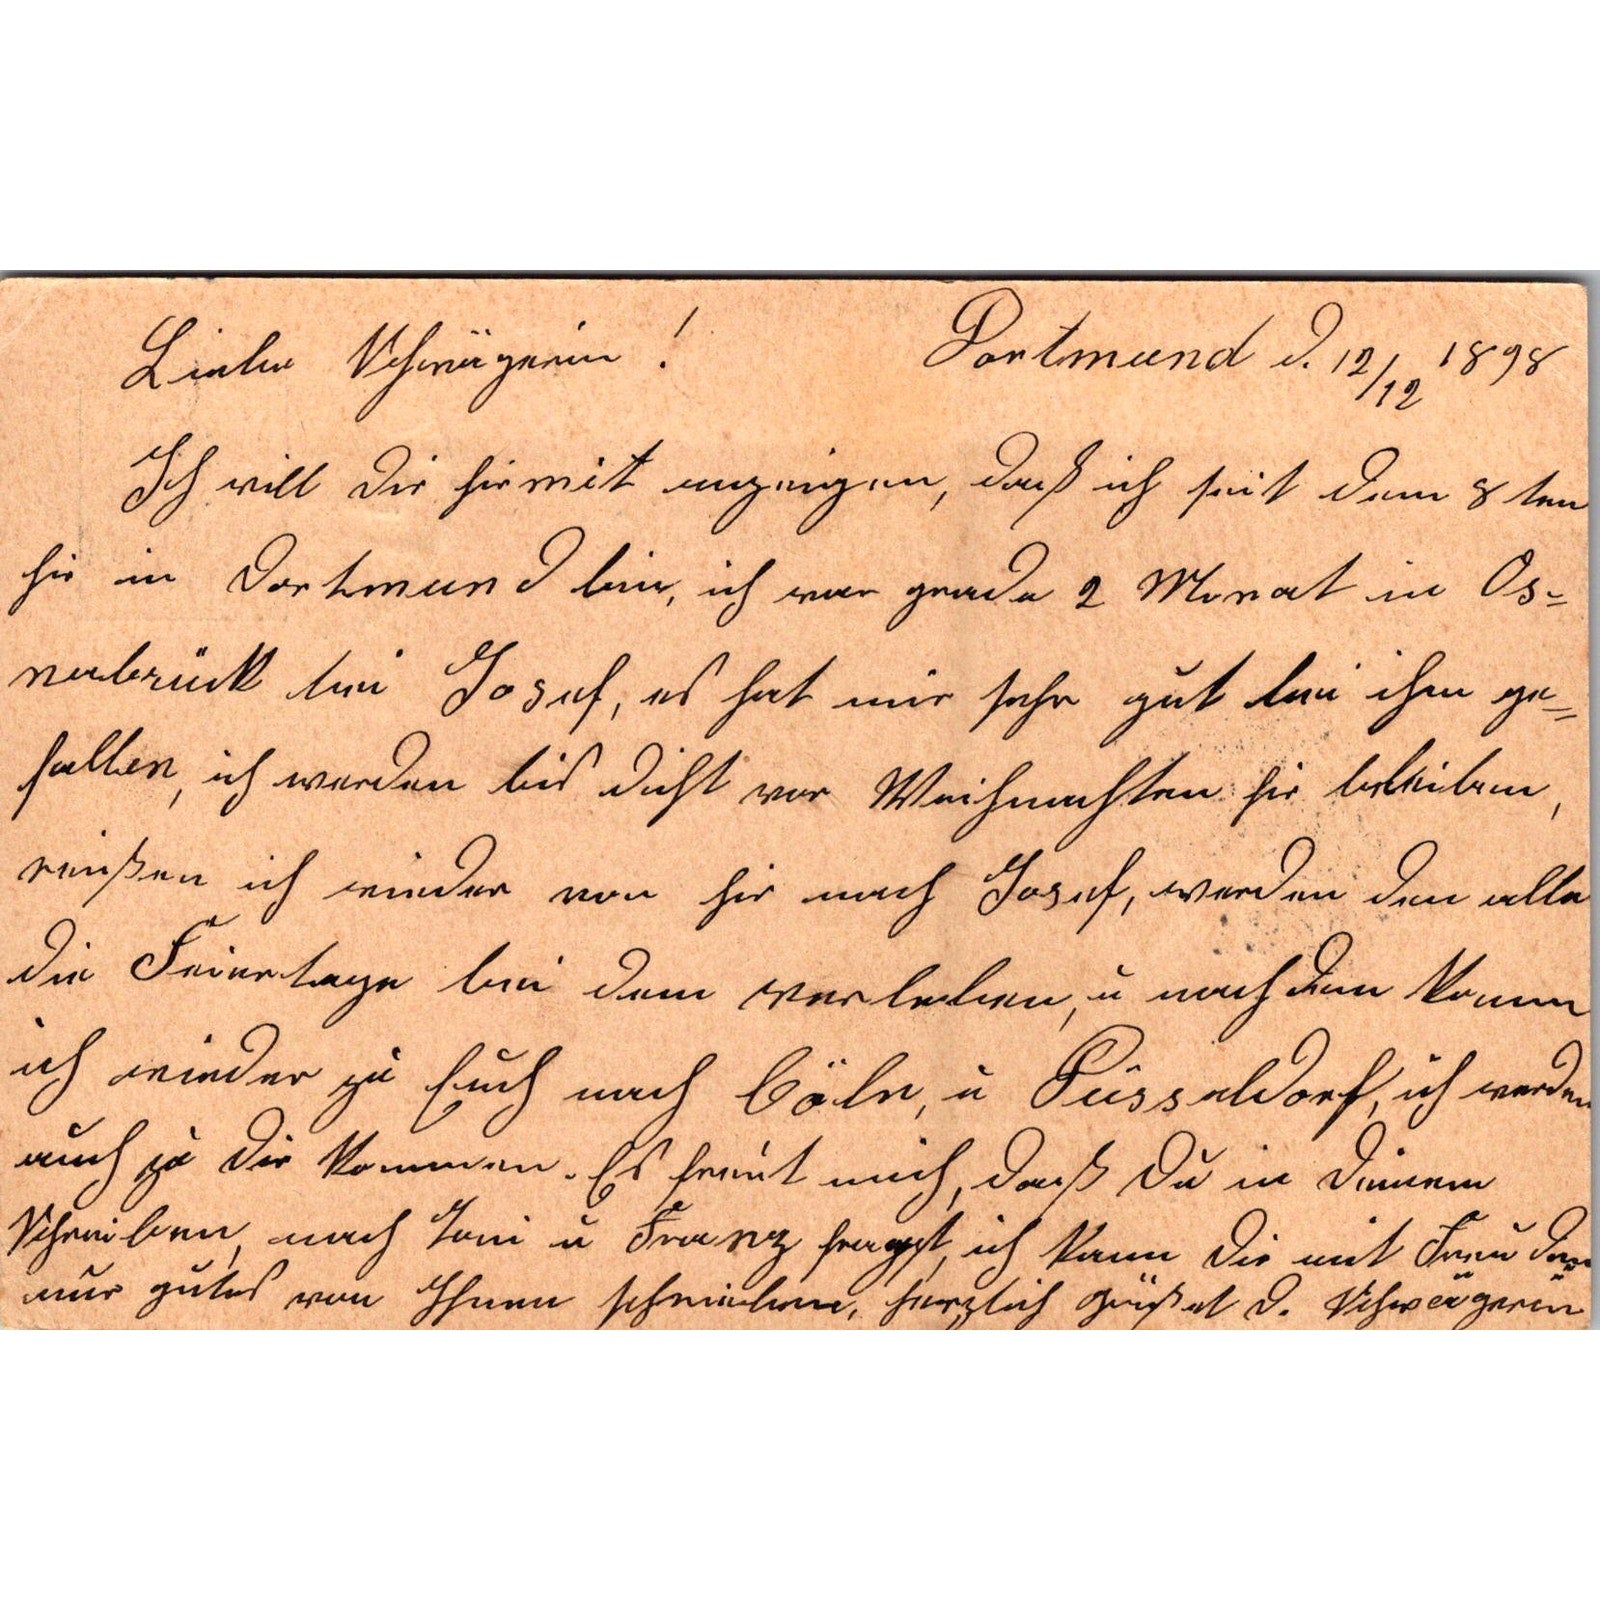 Liebe Schwägerin! Dortmund d. 12/12 1898
Ich will Dir hirmit anzeigen, daß ich seit dem 8ten
hir in Dortmund bin, ich war grade 2 Monat in Os=
nabrück bei Josef, es hat mir sehr gut bei ihm ge=
fallen, ich werden bis dicht vor Weihnachten hir bleiben,
reißen ich wieder von hir nach Josef, werden den alle
die Feiertage bei dem verleben, u nachdem komm
ich wieder zu Euch nach Cöln, u Düsseldorf, ich werden
auch zu Dir kommen. Es freut mich, daß Du in Deinem
Schreiben, nach Toni u Franz fragst, ich kann Dir mit Freuden
nur gutes von Ihnen schreiben, herzlich grüßet d. Schwägerin